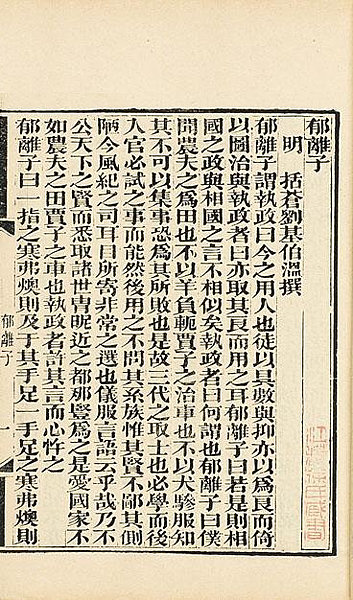 郁離子
明　括蒼劉基伯溫撰
郁離子謂執政曰今之用人也徒以具數與抑亦以爲良而倚
以圖治與執政者曰亦取其良而用之耳郁離子曰若是則相
國之政與相國之言不相似矣執政者曰何謂也郁離子曰僕
聞農夫之爲田也不以羊負軛賈子之治車也不以犬驂服知
其不可以集事恐爲其所敗也是故三代之取士也必學而後
入官必試之事而能然後用之不問其系族惟其賢不鄙其側
陋今風紀之司耳目所寄非常之選也儀服言語云乎哉乃不
公天下之賢而悉取諸世胄昵近之都那豎爲之是愛國家不
如農夫之田賈子之車也執政者許其言而心忤之
郁離子曰一指之寒弗燠則及于其手足一手足之寒弗燠則
郁離子
一